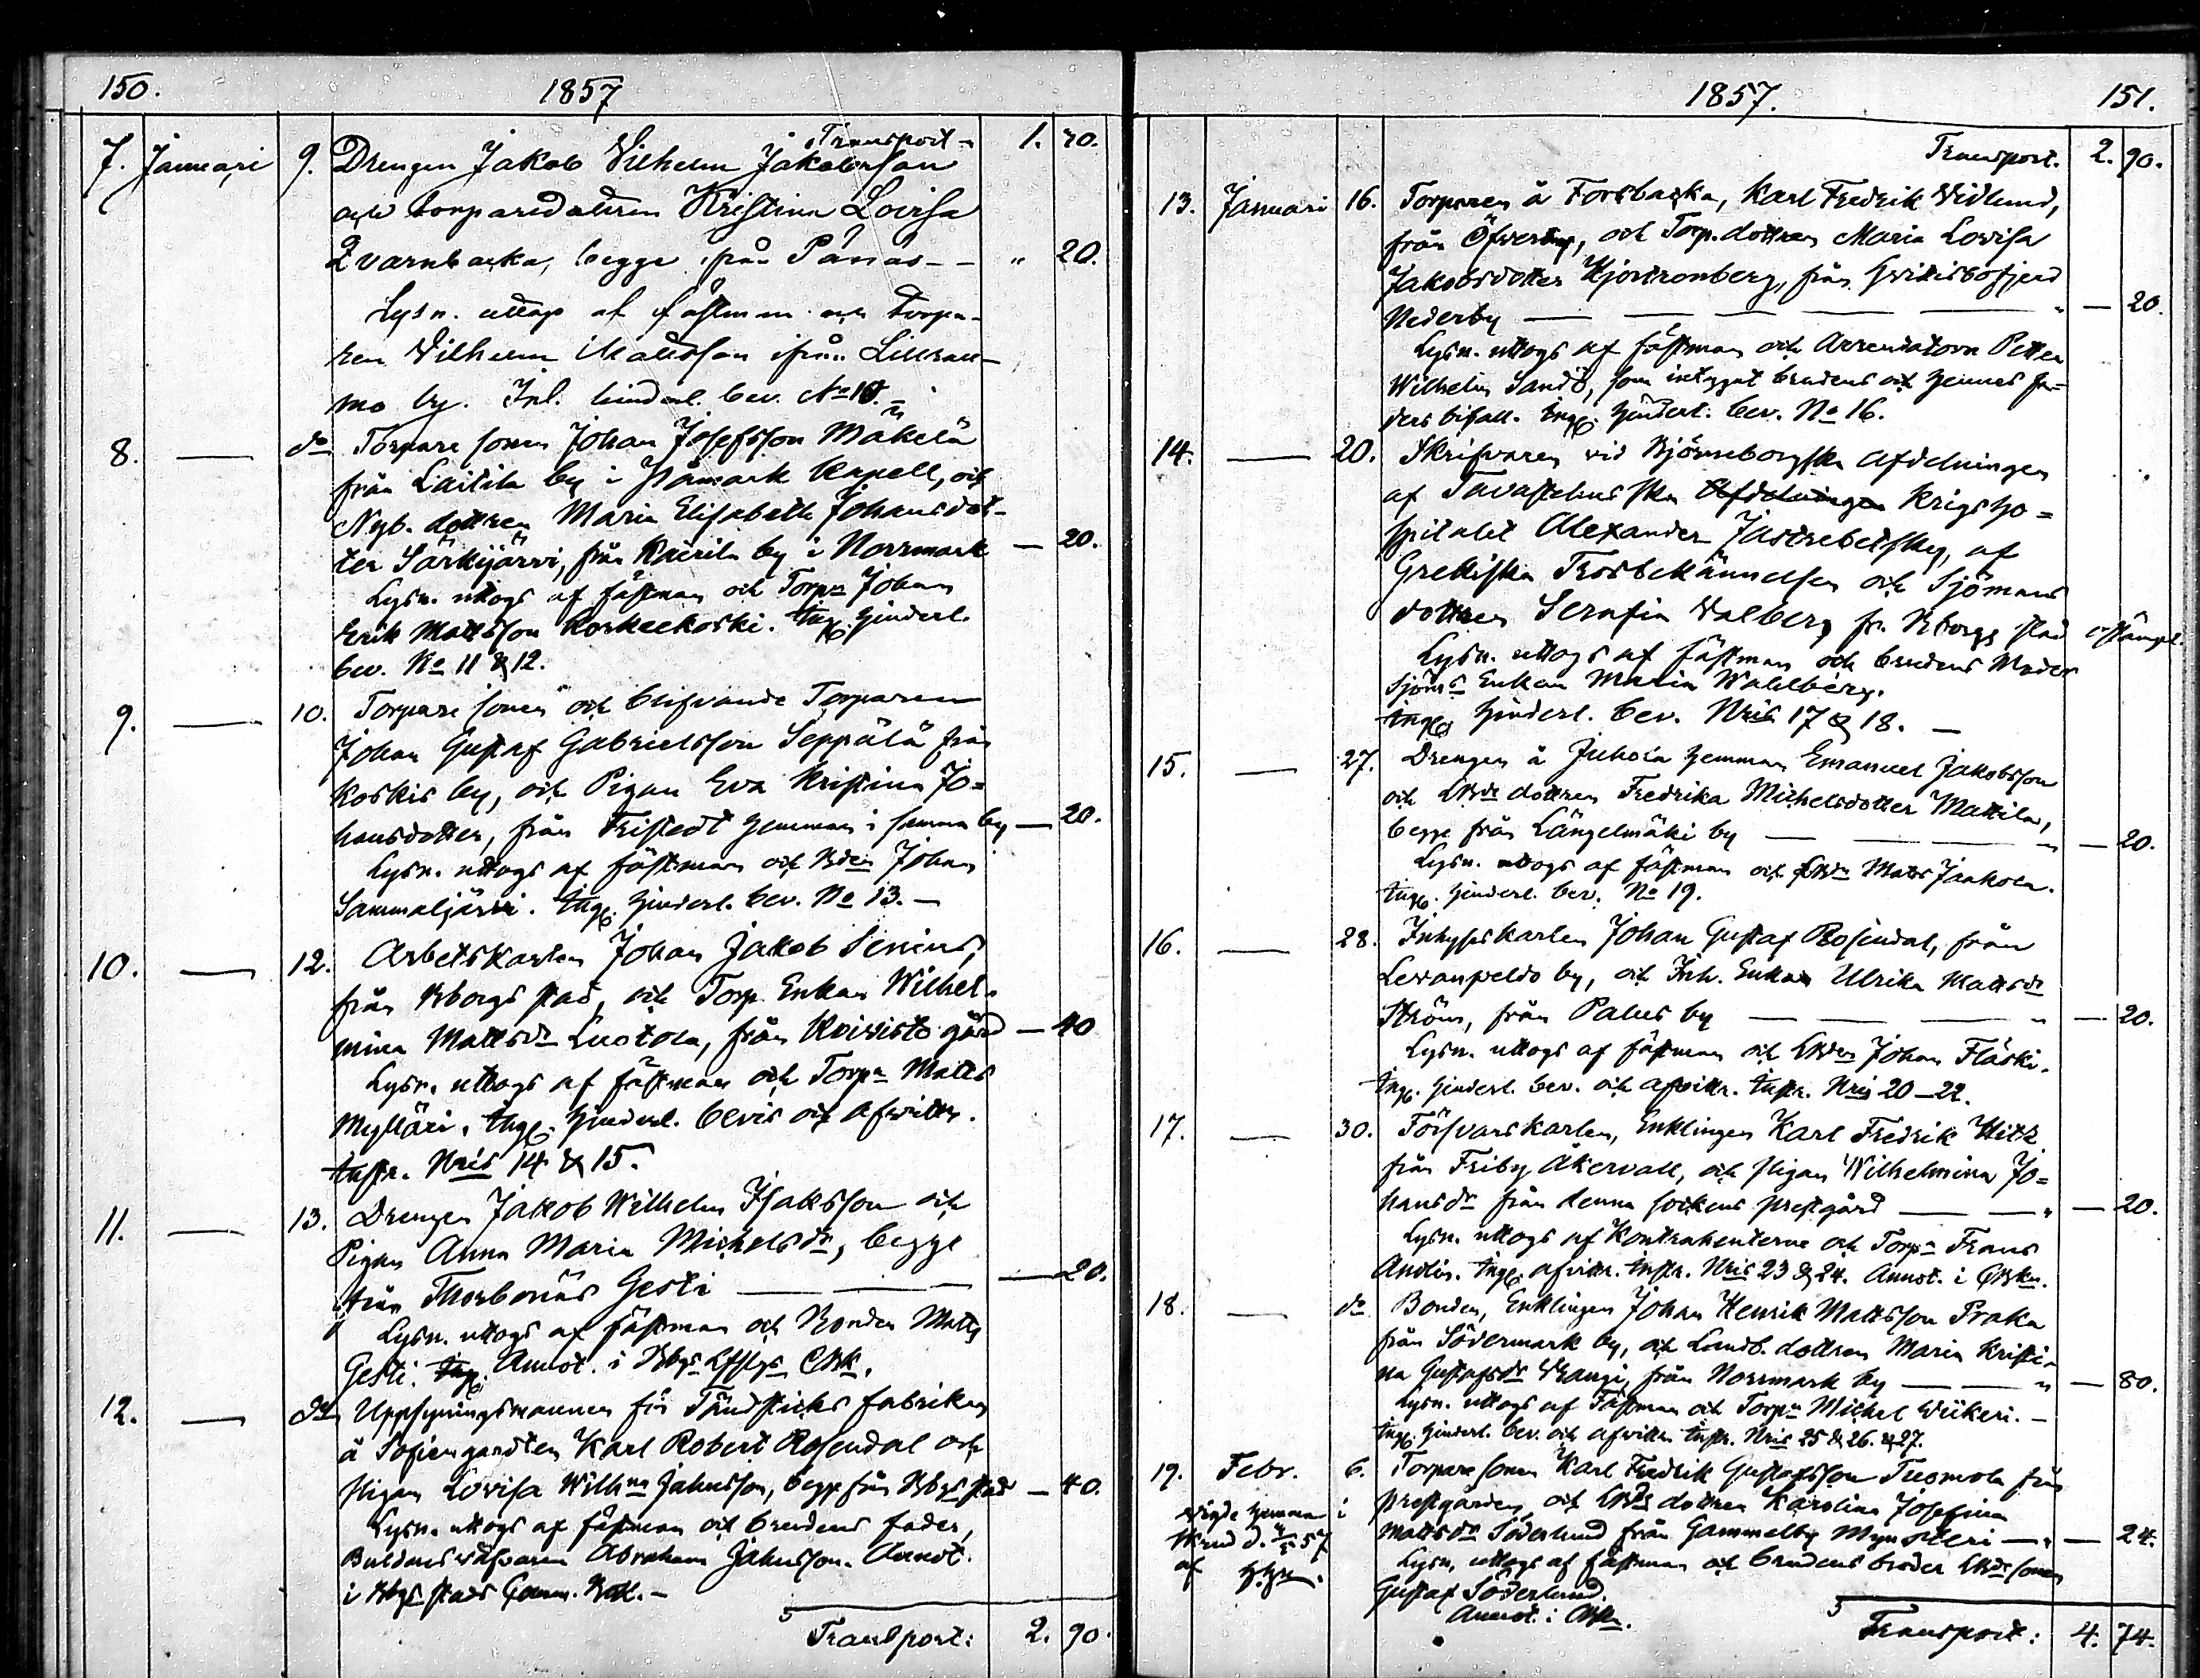 150. 1857
Transport 1. 70.
7. Januari 9. Drengen Jakob Vilhelm Jakobsson
och torparedottren Kristina Lovisa
Qvarnbacka, begge från Pånäs — " 20.
Lysn. uttogs af fästman och Torpa-
ren Vilhelm Mattsson ifrån
mo by. Inl. hinderl. bev. No 10.
8. — do Torpare sonen Johan Josefsson Mäkelä
från Laitila by i Påmark Kapell, och
Nyb. dottren Maria Elisabeth Johansdot-
ter Särkijärvi, från Kairila by i Norrmark — 20.
Lysn. uttogs af fästman och Torpn Johan
Erik Mattsson Korkeekoski. Ingg. hinderl.
bev. No 11 & 12.
9. — 10. Torpare sonen och blifvande Torparen
Johan Gustaf Gabrielsson Seppälä från
Koskis by, och Pigan Eva Kristina Jo=
hansdotter, från Fristedt hemman i samma by — 20.
Lysn. uttogs af fästman och Bden Johan
Sammaljärvi. Ingg. hinderl. bev. No 13. —
10. — 12. Arbetskarlen Johan Jakob Senius,
från Bborgs stad, och Torp. Enkan Wilhel-
mina Mattsdr Luotola, från Koivisto gård — 40
Lysn. uttogs af fästman och Torpn Matts
Mylläri. Ingg. hinderl. bevis och afvittr.
instr. Nris 14 & 15.
11. — 13. Drengen Jakob Wilhelm Isaksson och
Pigan Anna Maria Michelsdr, begge
från Thorbonäs Gesti — — 20.
Lysn. uttogs af fästman och Bonden Matts
Gesti. Ingg. Annot. i Bbgs Lffgs CBk.
12. — do Uppsyningsmannen för Tändsticks fabriken
å Sofiengardten Karl Robert Rosendal och
Pigan Lovisa Wilhna Jahnsson, begge från Bbgs stad — 40.
Lysn. uttogs af fästman och brudens fader,
Buldansväfvaren Abraham Jahnsson. Annot.
i Bbgs stads Comm. Bok. —
Transport: 2. 90.
1857. 151.
Transport. 2. 90.
13. Januari 16. Torparen å Forsbacka, Karl Fredrik Widlund,
från Öfverby, och Torp. dottren Maria Lovisa
Jakobsdotter Hjortronberg, från Hvittisbofjerd
Nederby — — — — " — 20.
Lysn. uttogs af fästman och Arrendatorn Petter
Wilhelm Sandö, som intygat brudens och hennes fa=
ders bifall. Ingg. hinderl. bev. No 16.
14. — 20. Skrifvaren vid Björneborgska afdelningen
af Tavastehusska Afdelningen Krigsho=
spitalet Alexander Jastrebetsky, af
Grekiska Trosbekännelsen och Sjömans
dottren Serafia Walberg fr. Bborgs stad
Lysn. uttogs af fästman och brudens Moder
Sjöms Enkan Maria Wahlberg.
Ingg. hinderl. bev. Nris 17 & 18. —
15. — 27. Drengen å Juhola hemman Emanuel Jakobsson
och LBds dottren Fredrika Michelsdotter Mattila,
begge från Längelmäki by — — — " — 20.
Lysn. uttogs af fästman och LBdn Matts Jaakola.
Ingg. hinderl. bev. No 19.
16. — 28. Inhyseskarlen Johan Gustaf Rosendal, från
Levanpeldo by, och Inh. Enkan Ulrika Mattsdr
Ström, från Palus by — — — " — 20.
Lysn. uttogs af fästman och LBden Johan Fläski.
Ingg. hinderl. bev. och afvittr. instr. Nris 20—22.
17. — 30. Försvarskarlen, Enklingen Karl Fredrik Hitz
från Friby Åkervall, och pigan Wilhelmina Jo=
hansdr från denna sockens prestgård — — " — 20.
Lysn. uttogs af Kontrahenterne och Torpn Frans
Andlin. Ingg. afvittr. instr. Nris 23 & 24. Annot. i CBkn.
18. — do Bonden, Enklingen Johan Henrik Mattsson Praka
från Södermark by, och Landb. dottren Maria Kristi-
na Gustafsdr Wrangi, från Norrmark by — — " — 80.
Lysn. uttogs af Fästman och Torpn Michel Wiikeri. —
Ingg. hinderl. bev. och afvittr. instr. Nris 25 & 26. & 27.
19. Febr. 6. Torpare sonen Karl Fredrik Gustafsson Tuomola från
prestgården, och LBds dottren Karolina Josefina
Mattsdr Söderlund från Gammelby Mynsteri — " — 24.
Lysn. uttogs af fästman och brudens broder LBds sonen
Gustaf Söderlund.
Annot. i CBkn.
Vigde hemma i
af
Transport: 4. 74.